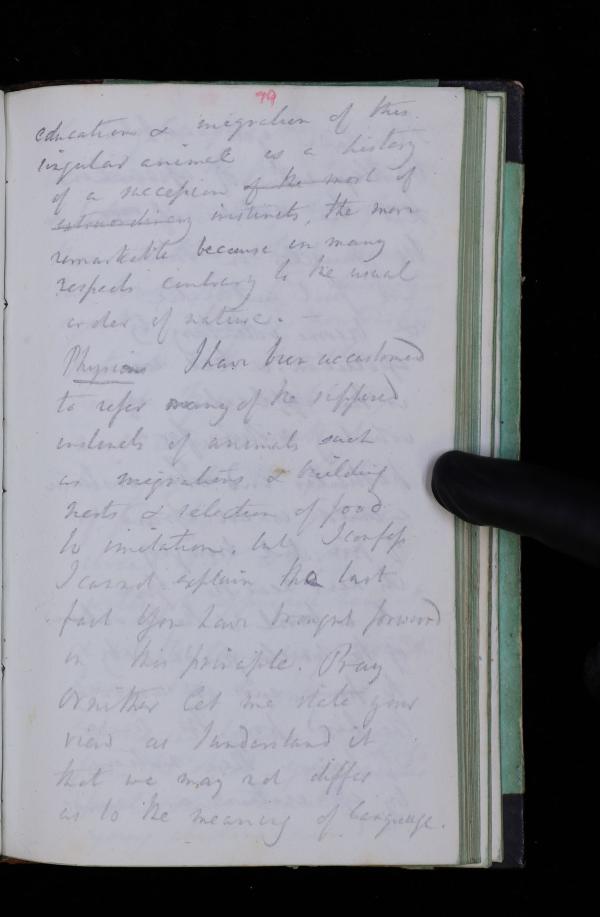 79
education & migration of this
singular animal is a history
of a succession of the most of
extraordinary instincts, the more
remarkable because in many
respects contrary to the usual
order of nature. —
Physicus I have been accustomed
to refer many of the supposed
instincts of animals such
as migrations, & building
nests & selection of food
to imitation, but I confess
I cannot explain the last
fact you have brought forward
on this principle. Pray
Ornither let me state your
view as I understand it
that we may not differ
as to the meaning of language.